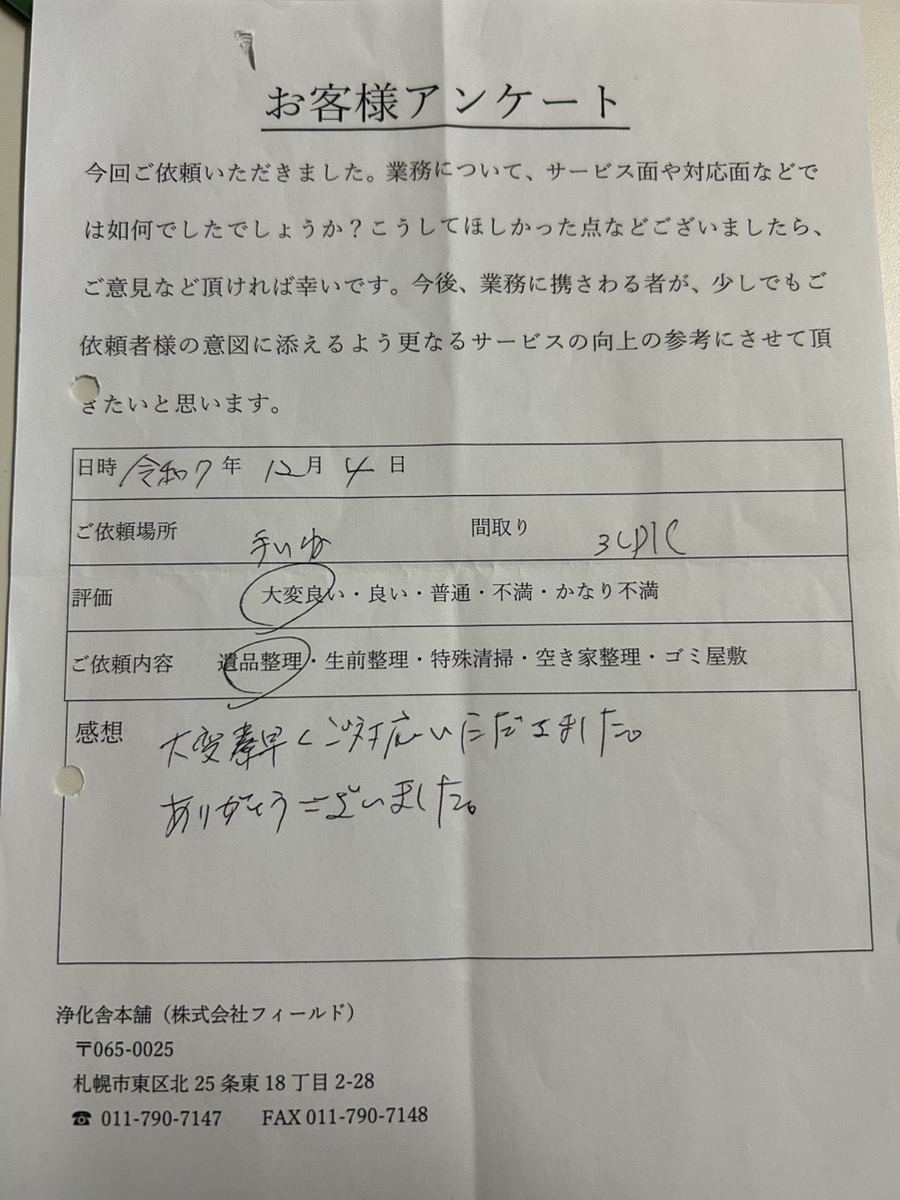 お客様アンケート
今回ご依頼いただきました。業務について、サービス面や対応面などで
は如何でしたでしょうか？こうしてほしかった点などございましたら、
ご意見など頂ければ幸いです。今後、業務に携さわる者が、少しでもご
依頼者様の意図に添えるよう更なるサービスの向上の参考にさせて頂
きたいと思います。
日時 令和7年 12月 4日
ご依頼場所 間取り 3LDK
評価 大変良い・良い・普通・不満・かなり不満
ご依頼内容 遺品整理・生前整理・特殊清掃・空き家整理・ゴミ屋敷
感想 大変素早くご対応いただきました。
ありがとうございました。
浄化舎本舗（株式会社フィールド）
〒065-0025
札幌市東区北 25 条東 18 丁目 2-28
☎ 011-790-7147 FAX 011-790-7148